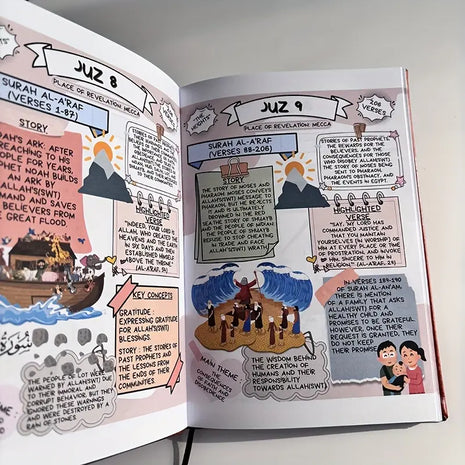 JUZ 8
SURAH AL-A'RAF
(VERSES 1-87)
PLACE OF REVELATION: MECCA
STORY
ARK: AFTER
TO HIS
PEOPLE FOR YEARS,
NOAH BUILDS
ARK BY
AND SAVES
BELIEVERS FROM
GREAT FLOOD
HIGHLIGHTED
"INDEED, YOUR LORD IS
ALLAH, WHO CREATED THE
HEAVENS AND THE EARTH
IN SIX DAYS AND THEN
ESTABLISHED HIMSELF
ABOVE THE THRONE"
(AL-A'RAF, 54)
KEY CONCEPTS
GRATITUDE :
EXPRESSING GRATITUDE
FOR ALLAH(SWT)
BLESSINGS.
STORY : THE STORIES OF
PAST PROPHETS AND
THE LESSONS FROM
THE ENDS OF THEIR
COMMUNITIES.
سورة
THE PEOPLE OF LOT WERE
WARNED BY ALLAH(SWT) DUE
TO THEIR IMMORAL AND
CORRUPT BEHAVIOR. BUT THEY
IGNORED THESE WARNINGS
AND WERE DESTROYED BY A
RAIN OF STONES.
JUZ 9
"THE
HEIGHTS"
206
VERSES
PLACE OF REVELATION: MECCA
SURAH AL-A'RAF
(VERSES 88-206)
STORY
THE STORY OF MOSES AND
PHARAOH. MOSES CONVEYS
ALLAH(SWT) MESSAGE TO
PHARAOH, BUT HE REJECTS
IT AND IS ULTIMATELY
DROWNED IN THE RED
SEA. THE STORY OF SHUAYB
AND THE PEOPLE OF MIDIAN.
THE PEOPLE OF SHUAYB REFUSE
TO STOP DECEIT
IN TRADE AND FACE
ALLAH(SWT) WRATH.
STORIES OF PAST PROPHETS,
THE REWARDS FOR THE
BELIEVERS, AND THE
CONSEQUENCES FOR THOSE
WHO DISOBEY ALLAH(SWT).
THE STORY OF MOSES BEING
SENT TO PHARAOH,
PHARAOH'S OBSTINACY, AND
THE EVENTS IN EGYPT.
HIGHLIGHTED
VERSE
"SAY, MY LORD HAS
COMMANDED JUSTICE AND
THAT YOU MAINTAIN
YOURSELVES (IN WORSHIP) OF
HIM AT EVERY PLACE OR TIME
OF PROSTRATION, AND INVOKE
HIM, SINCERE TO HIM IN
RELIGION." (AL-A'RAF, 29)
IN VERSES 189-190
OF SURAH AL-AN'AM,
THERE IS MENTION
OF A FAMILY THAT ASKS
ALLAH(SWT) FOR A
HEALTHY CHILD AND
PROMISES TO BE GRATEFUL.
HOWEVER, ONCE THEIR
REQUEST IS GRANTED, THEY
DO NOT KEEP
THEIR PROMISE.
MAIN THEME :
THE
CONSEQUENCES
OF FAITH AND
DISOBEDIENCE
THE WISDOM BEHIND
THE CREATION OF
HUMANS AND THEIR
RESPONSIBILITY
TOWARDS ALLAH(SWT).